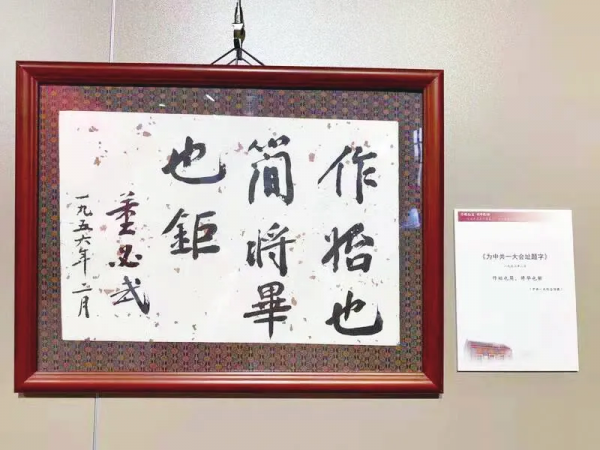 作始也
簡將畢
也鉅
董必武
一九五六年二月
《为中共一大会址题字》
作始也简，将毕也钜